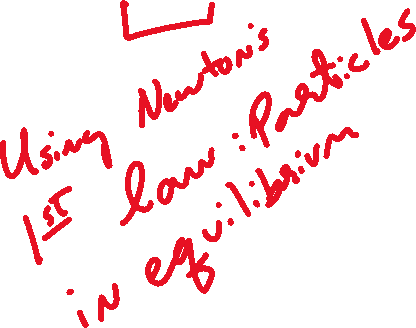 Using Newton's
1ST law: Particles
in equilibrium